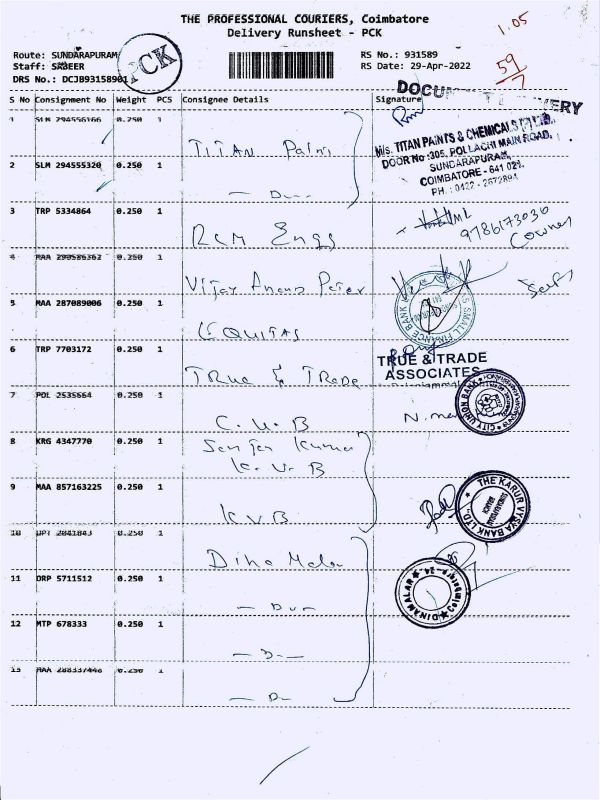 THE PROFESSIONAL COURIERS, Coimbatore
Delivery Runsheet - PCK
1.05
Route: SUNDARAPURAM
Staff: SABEER
DRS No.: DCJB93158901
PCK
RS No.: 931589
RS Date: 29-Apr-2022
59
S No Consignment No Weight PCS Consignee Details Signature
DOCUMENT DELIVERY
1 SLM 294556166 0.250 1 TITAN Paints
M/s. TITAN PAINTS & CHEMICALS (P) LTD.
DOOR No :305, POLLACHI MAIN ROAD,
SUNDARAPURAM,
COIMBATORE - 641 024.
PH : 0422 - 2672894
2 SLM 294555320 0.250 1
3 TRP 5334864 0.250 1 RCM Engg
9786173030
Cowner
4 MAA 290586362 0.250 1 Vijay Anand Peter
Self
5 MAA 287089006 0.250 1 EQUITAS
SMALL FINANCE BANK
6 TRP 7703172 0.250 1 TRUE & TRADE
TRUE & TRADE
ASSOCIATES
7 POL 2535664 0.250 1 C.U.B
CITY UNION BANK
8 KRG 4347770 0.250 1 Sanjay Kumar
K.V.B
9 MAA 857163225 0.250 1 KVB
THE KARUR VYSYA BANK LTD.
10 UPT 2041843 0.250 1 Dina Malar
11 DRP 5711512 0.250 1
DINAMALAR
12 MTP 678333 0.250 1
13 MAA 288337448 0.250 1